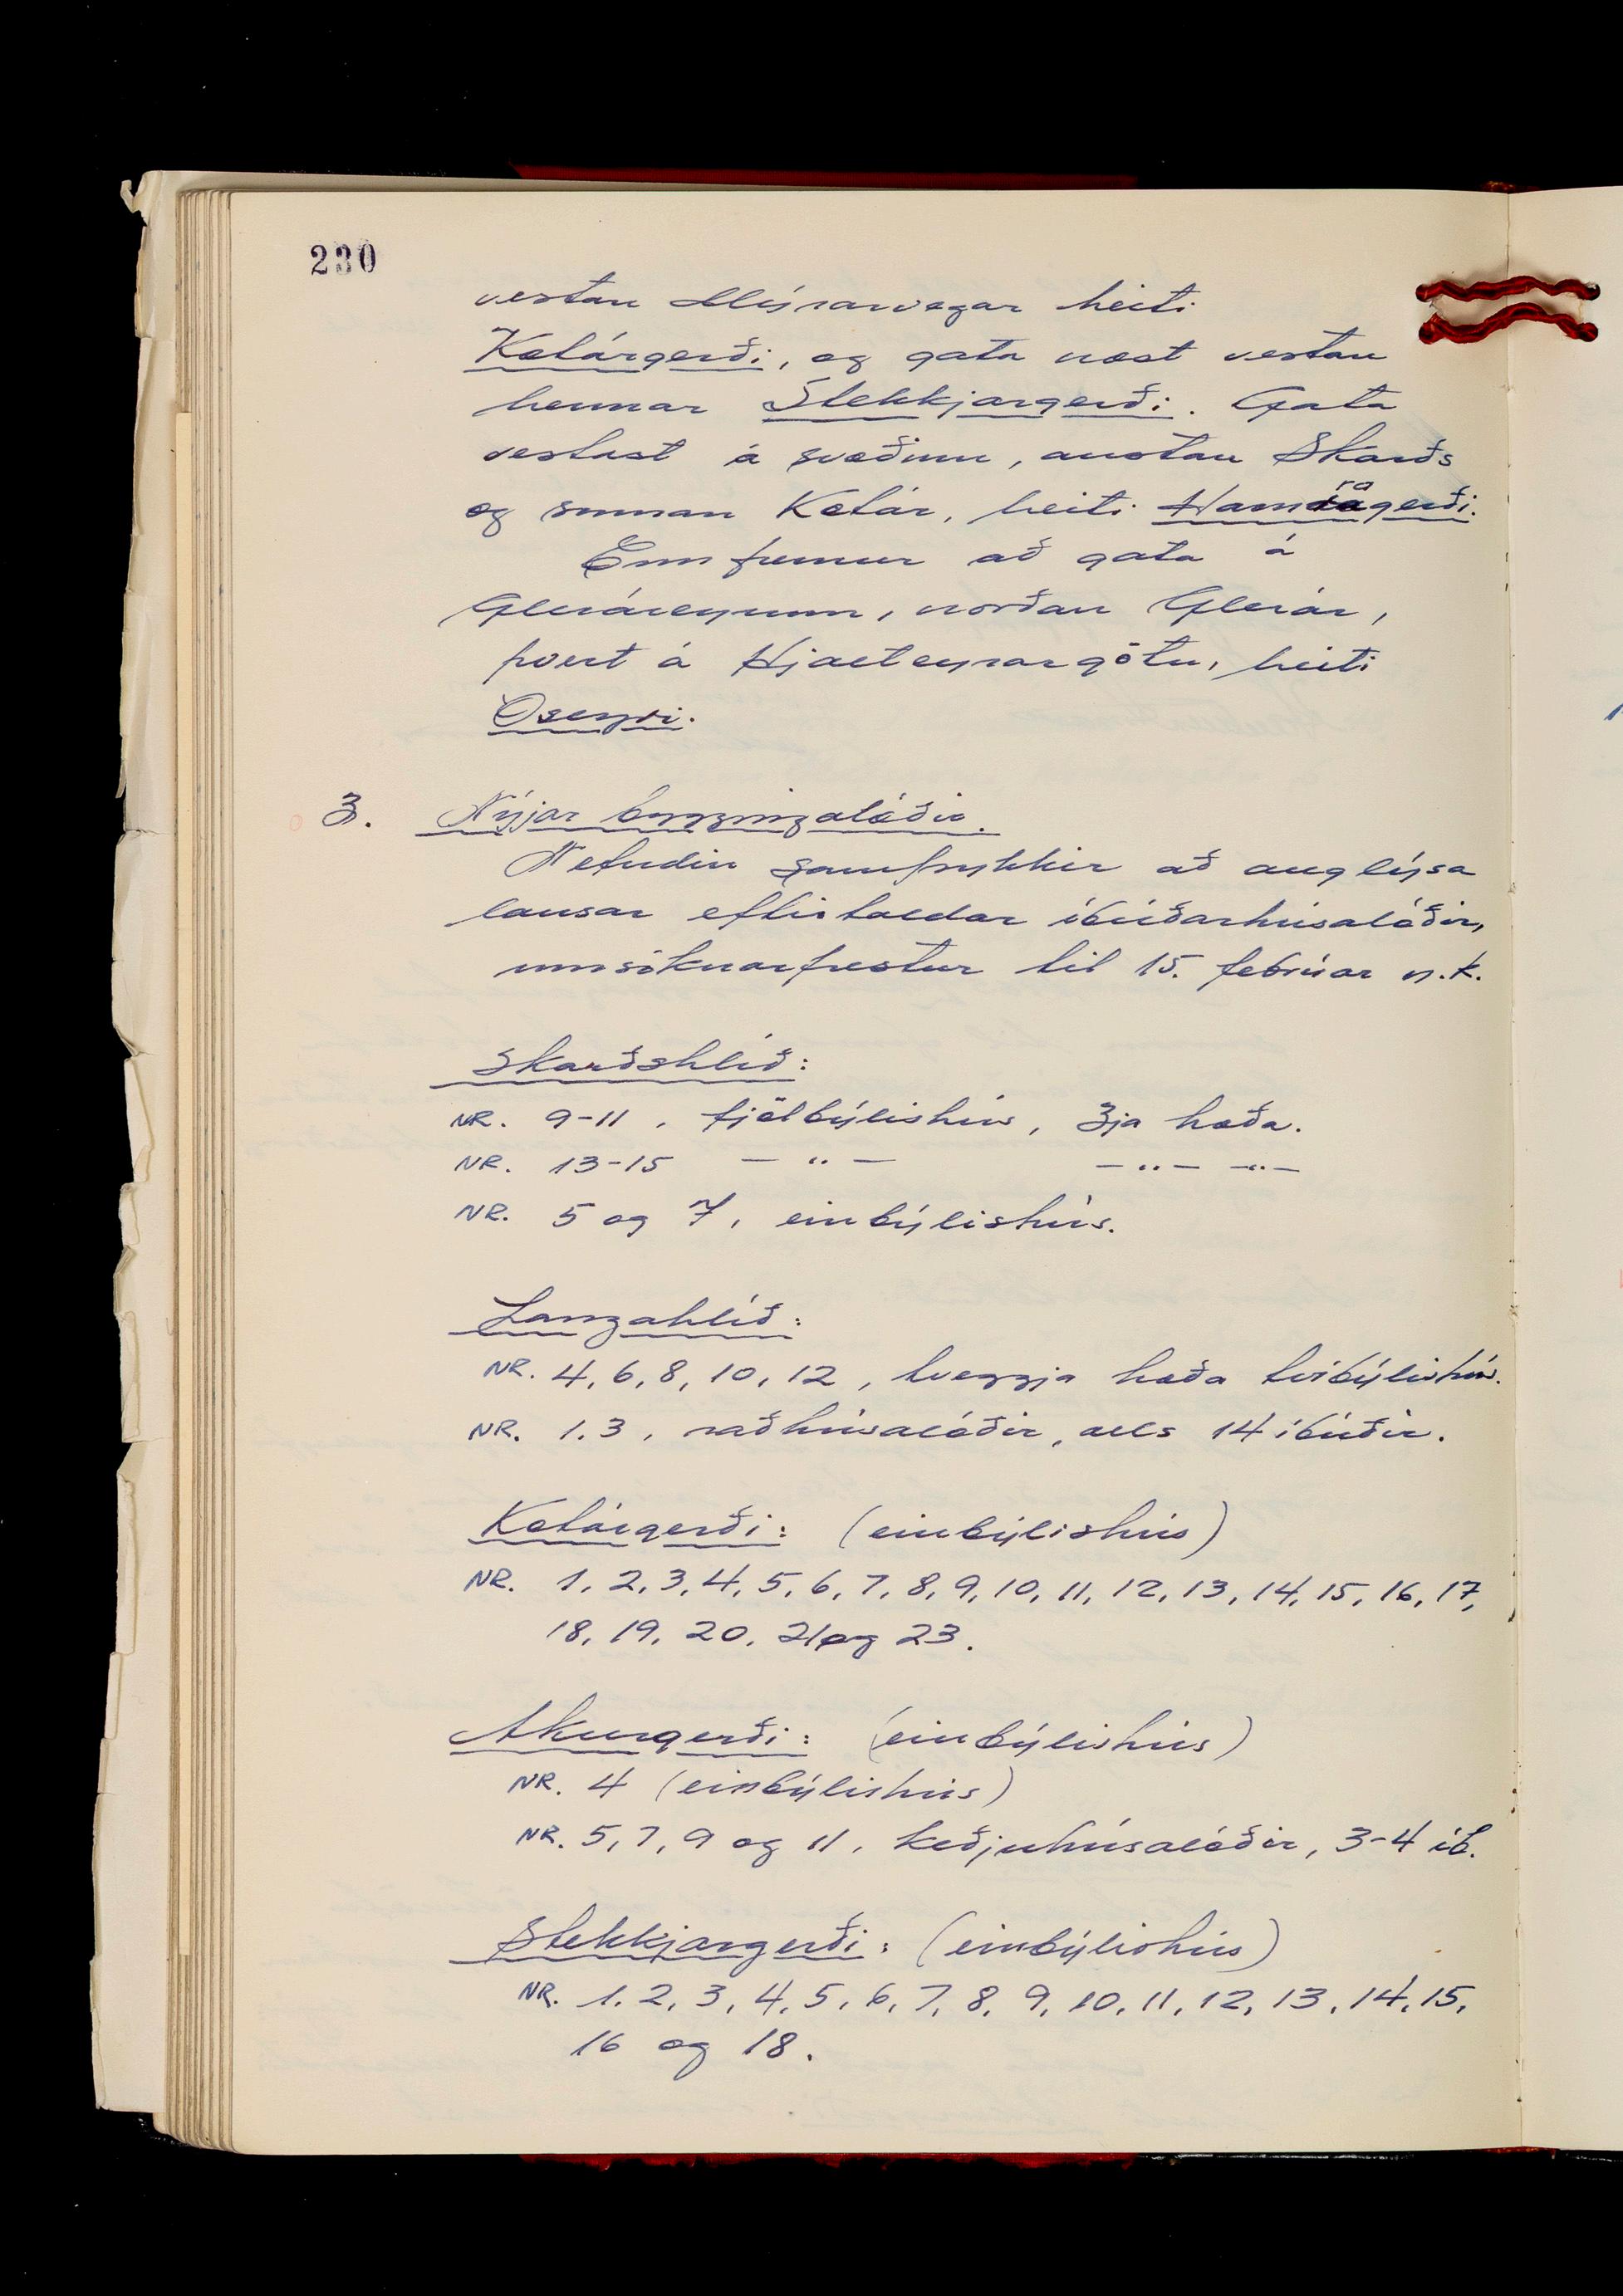 230
vestan Mýrarvegar heiti
Kotárgerði, og gata næst vestan
hennar Stekkjargerði. Gata
vestast á svæðinu, austan Skarðs
og sunnan Kotár, heiti Hamragerði.
Ennfremur að gata á
Gleráreyrum, norðan Glerár,
þvert á Hjalteyrargötu, heiti
Óseyri.
3. Nýjar byggingalóðir.
Nefndin samþykkir að auglýsa
lausar eftirtaldar íbúðarhúsalóðir,
umsóknarfrestur til 15. febrúar n.k.
Skarðshlíð:
NR. 9-11, fjölbýlishús, 3ja hæða.
NR. 13-15 — " — — " — — " —
NR. 5 og 7, einbýlishús.
Langahlíð:
NR. 4, 6, 8, 10, 12, tveggja hæða tvíbýlishús.
NR. 1.3, raðhúsalóðir, alls 14 íbúðir.
Kotárgerði: (einbýlishús)
NR. 1, 2, 3, 4, 5, 6, 7, 8, 9, 10, 11, 12, 13, 14, 15, 16, 17,
18, 19, 20, 21 og 23.
Akurgerði: (einbýlishús)
NR. 4 (einbýlishús)
NR. 5, 7, 9 og 11, keðjuhúsalóðir, 3-4 íb.
Stekkjargerði: (einbýlishús)
NR. 1, 2, 3, 4, 5, 6, 7, 8, 9, 10, 11, 12, 13, 14, 15,
16 og 18.